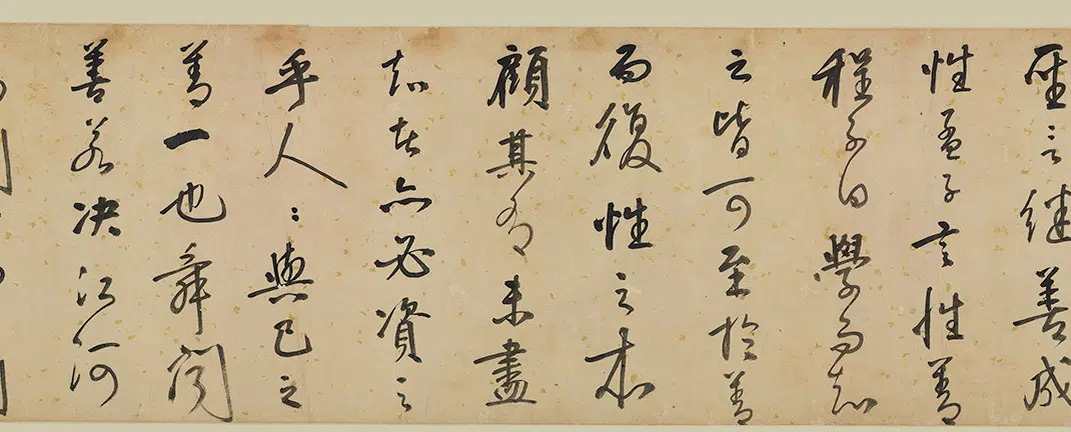 聖言继善成
性孟子言性善
程子曰學而知
之皆可至於善
而復性之本
顧其有未盡
知者亦必資之
乎人〻與己之
善一也舜聞
善若决江河